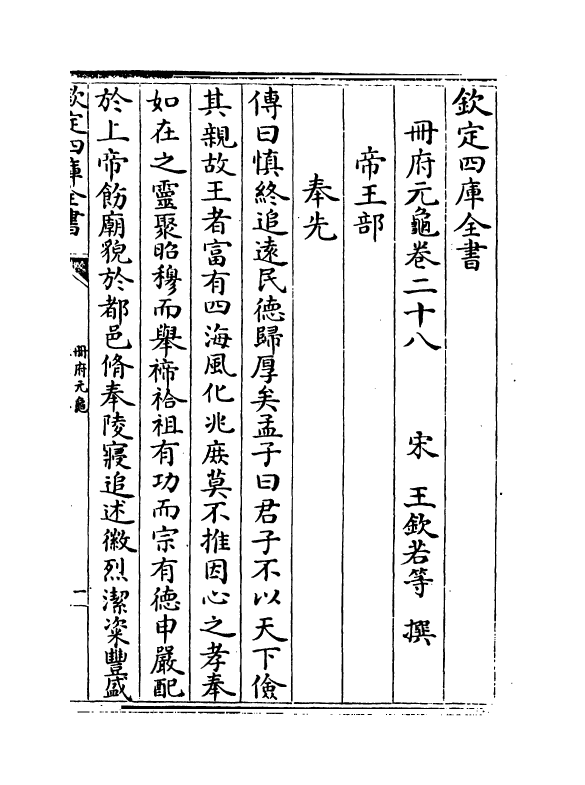 欽定四庫全書
冊府元龜卷二十八　　宋　王欽若等　撰
帝王部
奉先
傳曰慎終追遠民德歸厚矣孟子曰君子不以天下儉
其親故王者富有四海風化兆庻莫不推因心之孝奉
如在之靈聚昭穆而舉禘祫祖有功而宗有德申嚴配
於上帝飭廟貌於都邑脩奉陵寢追述徽烈潔粢豐盛
欽定四庫全書
冊府元龜